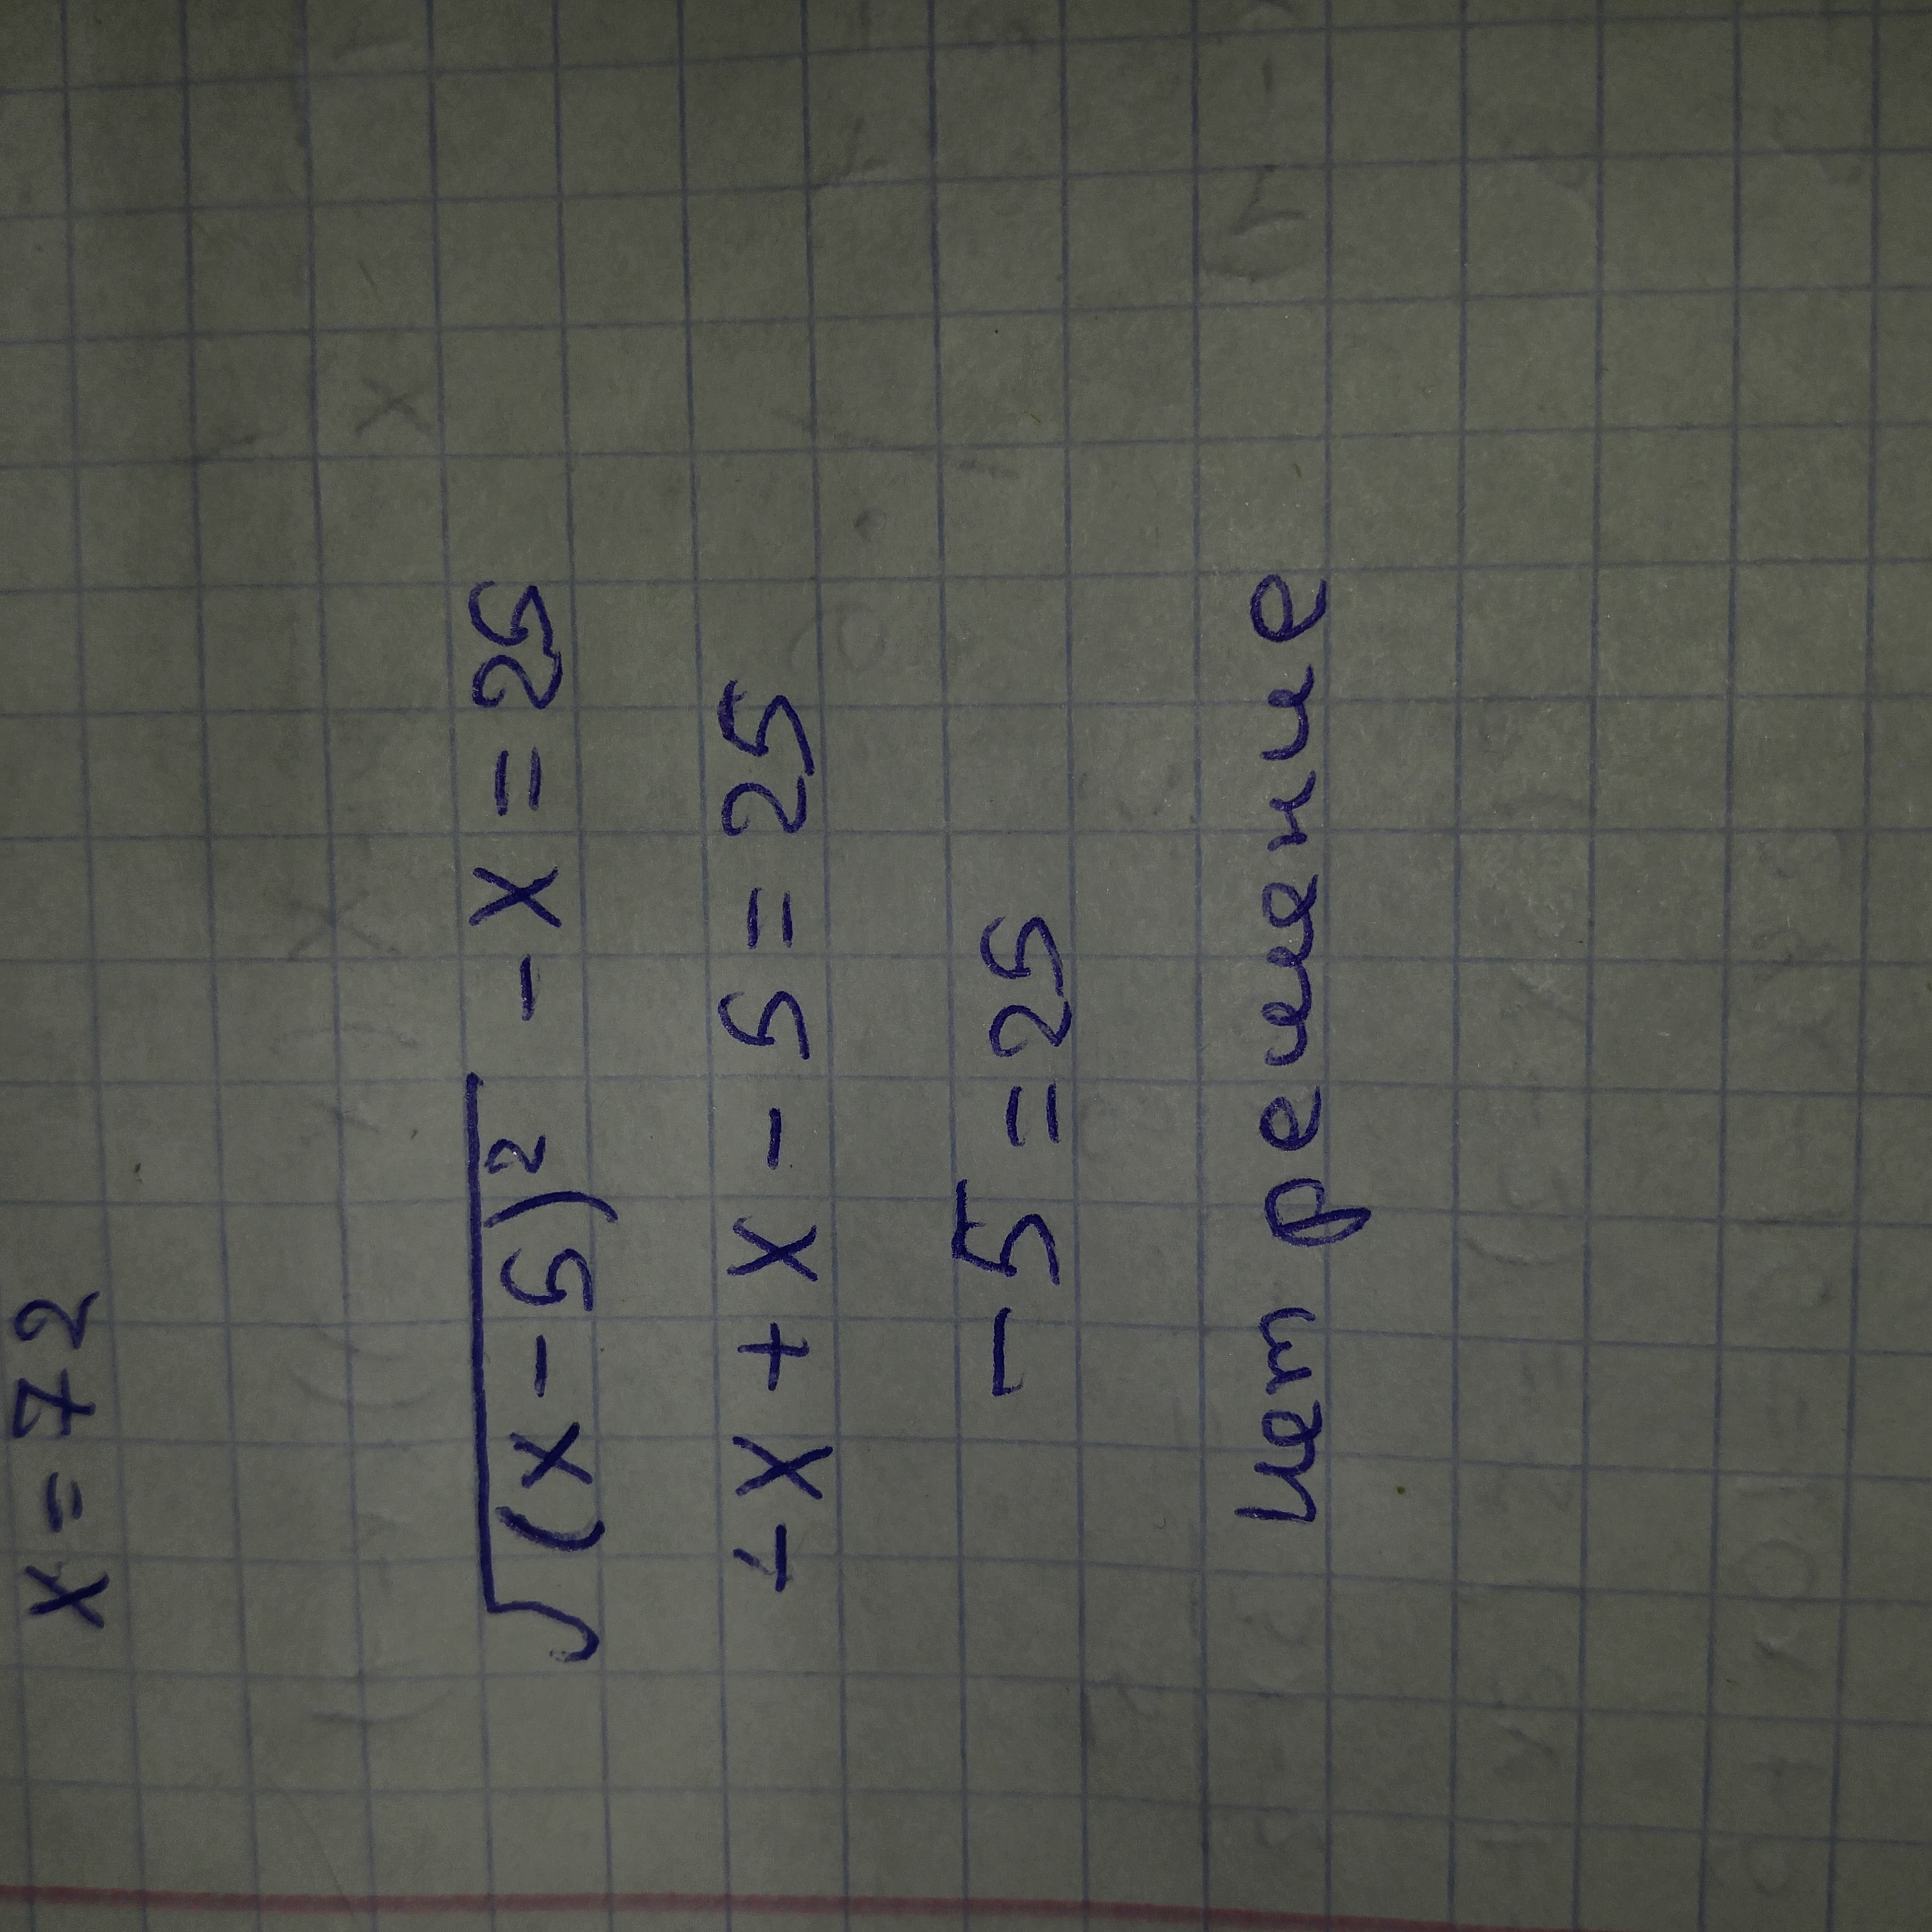 x = 72
√(x - 5)² - x = 25
-x + x - 5 = 25
-5 = 25
нет решение